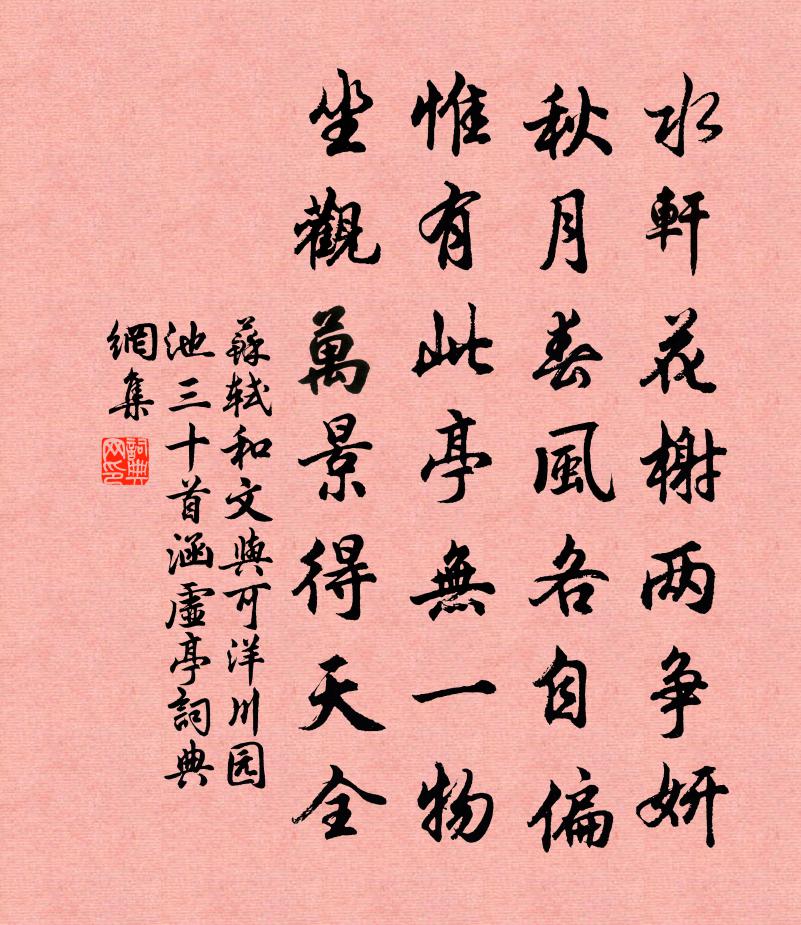 水軒花榭两争妍
秋月春風各自偏
惟有此亭無一物
坐觀萬景得天全
蘇轼和文與可洋川园
池三十首涵虛亭詞典
網集
詞典
网印